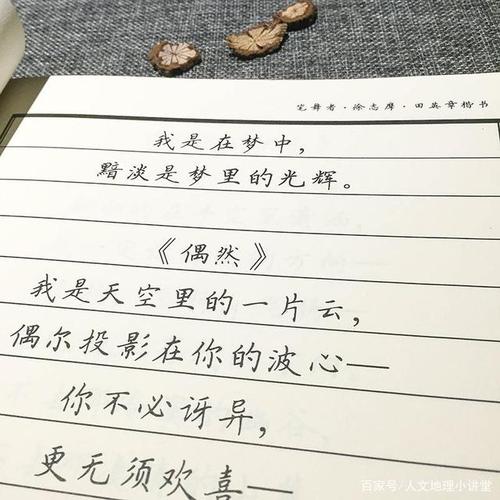 笔舞者·徐志摩·田英章楷书
我是在梦中，
黯淡是梦里的光辉。
《偶然》
我是天空里的一片云，
偶尔投影在你的波心—
你不必讶异，
更无须欢喜—
百家号/人文地理小讲堂